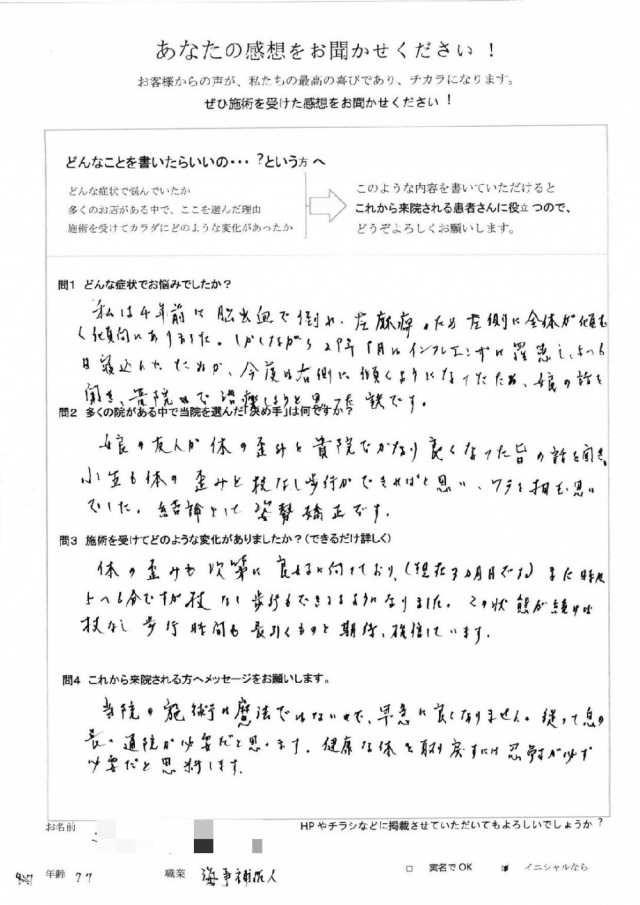 あなたの感想をお聞かせください！
お客様からの声が、私たちの最高の喜びであり、チカラになります。
ぜひ施術を受けた感想をお聞かせください！
どんなことを書いたらいいの・・・？という方へ
どんな症状で悩んでいたか
多くのお店がある中で、ここを選んだ理由
施術を受けてカラダにどのような変化があったか
このような内容を書いていただけると
これから来院される患者さんに役立つので、
どうぞよろしくお願いします。
問1 どんな症状でお悩みでしたか？
私は4年前に脳出血で倒れ、左麻痺のため左側に全体が傾む
く傾向にありました。しかしながら29年1月にインフルエンザに罹患し、5〜6
日寝込んだためか、今度は右側に傾くようになったため、娘の話を
聞き、貴院にて治療しようと思った訳です。
問2 多くの院がある中で当院を選んだ「決め手」は何ですか？
娘の友人が体の歪みを貴院でかなり良くなった旨の話を聞き、
小生も体の歪みと杖なし歩行ができればと思い、ワラをも掴む思い
でした。結論として姿勢矯正です。
問3 施術を受けてどのような変化がありましたか？（できるだけ詳しく）
体の歪みも次第に良好に向っており、（現在3ヵ月目である）また時間
5〜6分ですが杖なし歩行もできるようになりました。この状態が続けば
杖なし歩行時間も長引くものと期待、確信しています。
問4 これから来院される方へメッセージをお願いします。
当院の施術は魔法ではないので、早急に良くなりません。従って息の
長い通院が必要だと思います。健康な体を取り戻すには忍耐が必ず
必要だと思料します。
お名前
HPやチラシなどに掲載させていただいてもよろしいでしょうか？
年齢 77 職業 海事補佐人 □ 実名でOK イニシャルなら